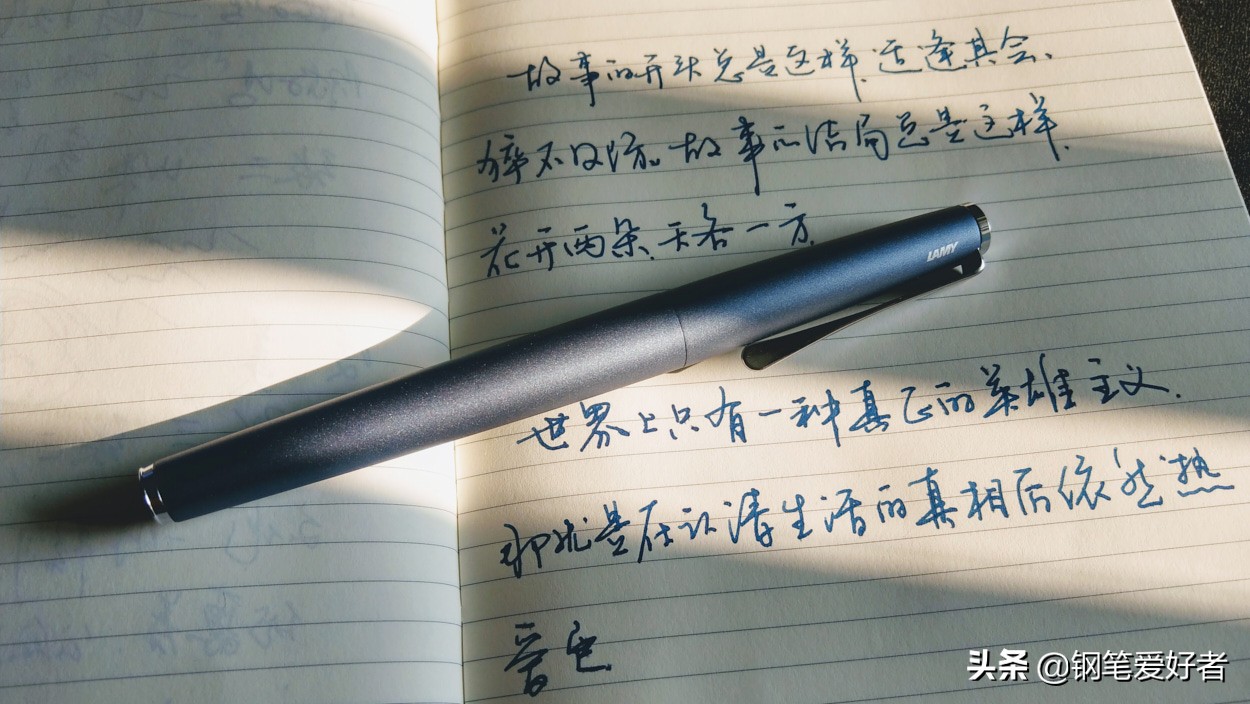 故事的开头总是这样,适逢其会,
猝不及防。故事的结局总是这样,
花开两朵,天各一方.
LAMY
世界上只有一种真正的英雄主义,
那就是在认清生活的真相后依然热
爱它.
头条 @钢笔爱好者